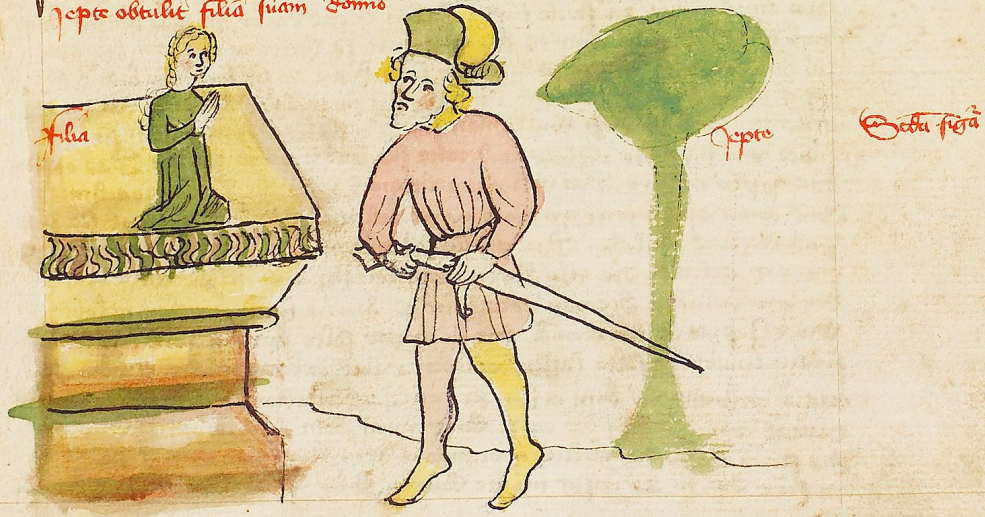 Jepte obtulit filiā suam domio
Filia
Jepte
Scd̄a figā